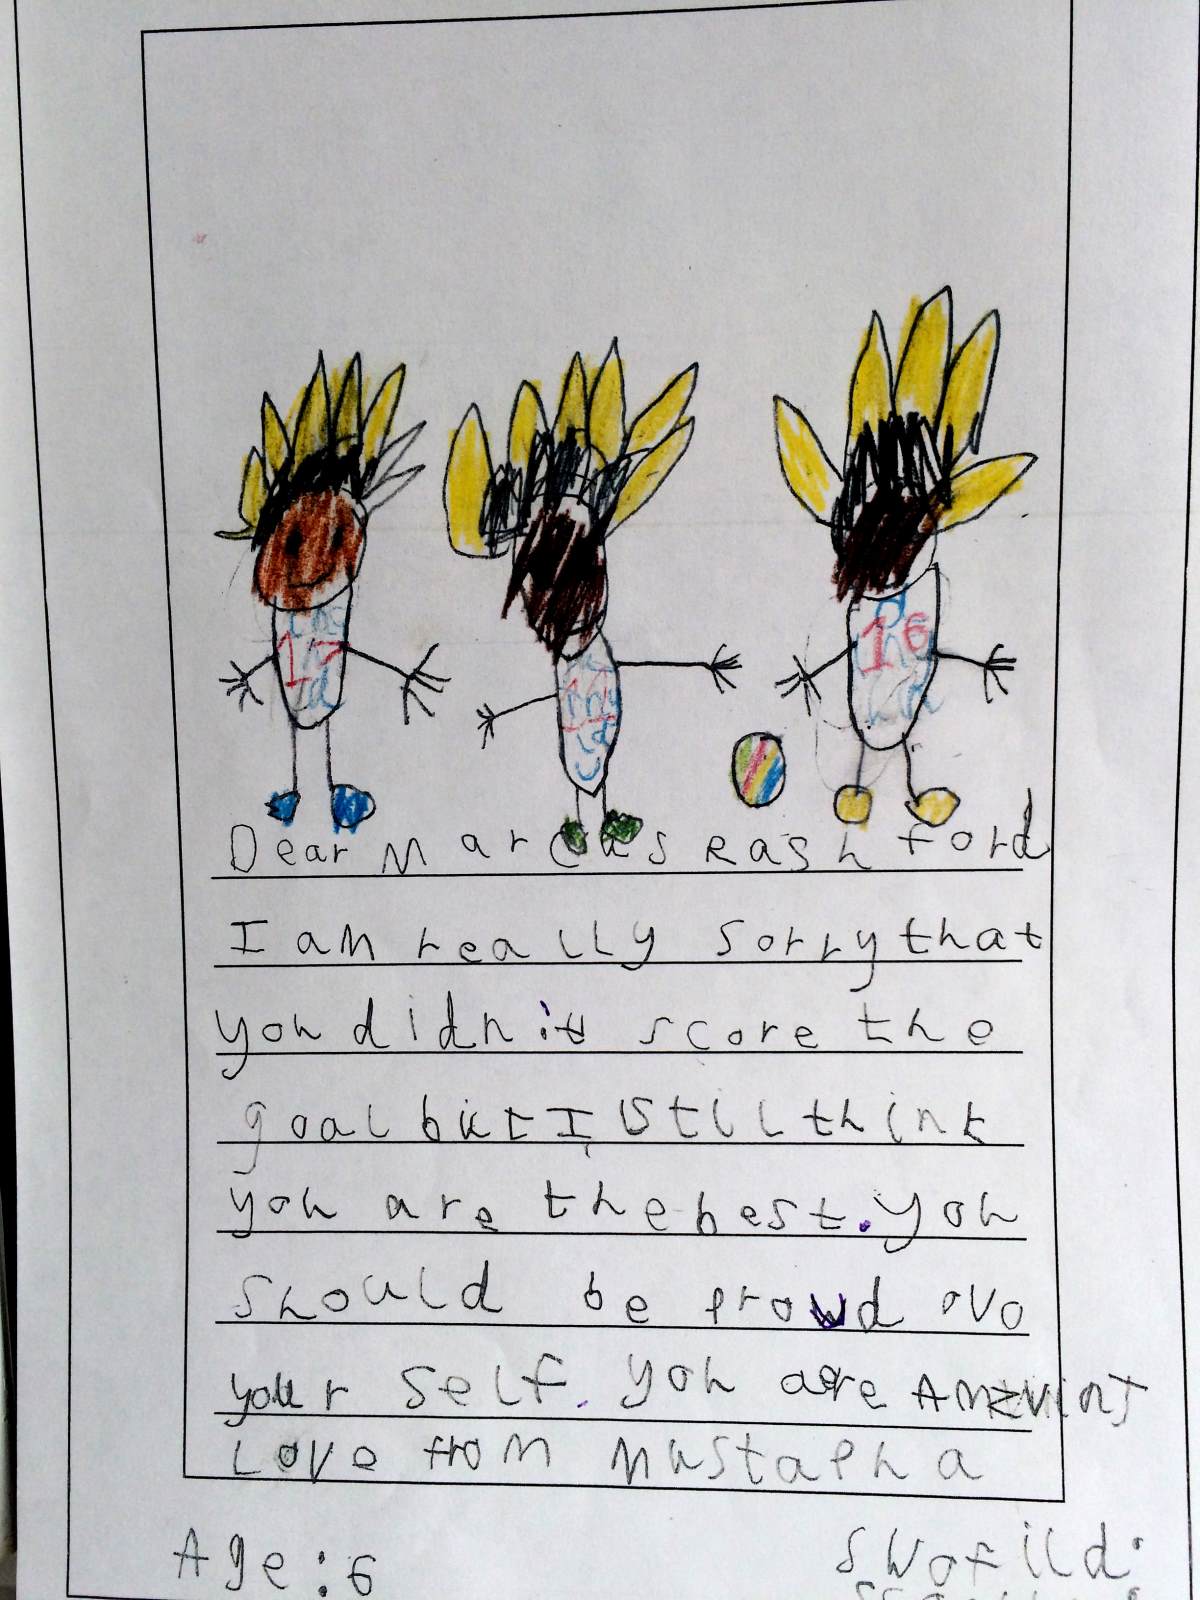 17
11
16
Dear Marcus Rashford
I am really sorry that
you didn't score the
goal but I still think
you are the best. you
should be proud ovo
your self. you are Amzvint
Love from Mustapha
Age: 6
Swofild.